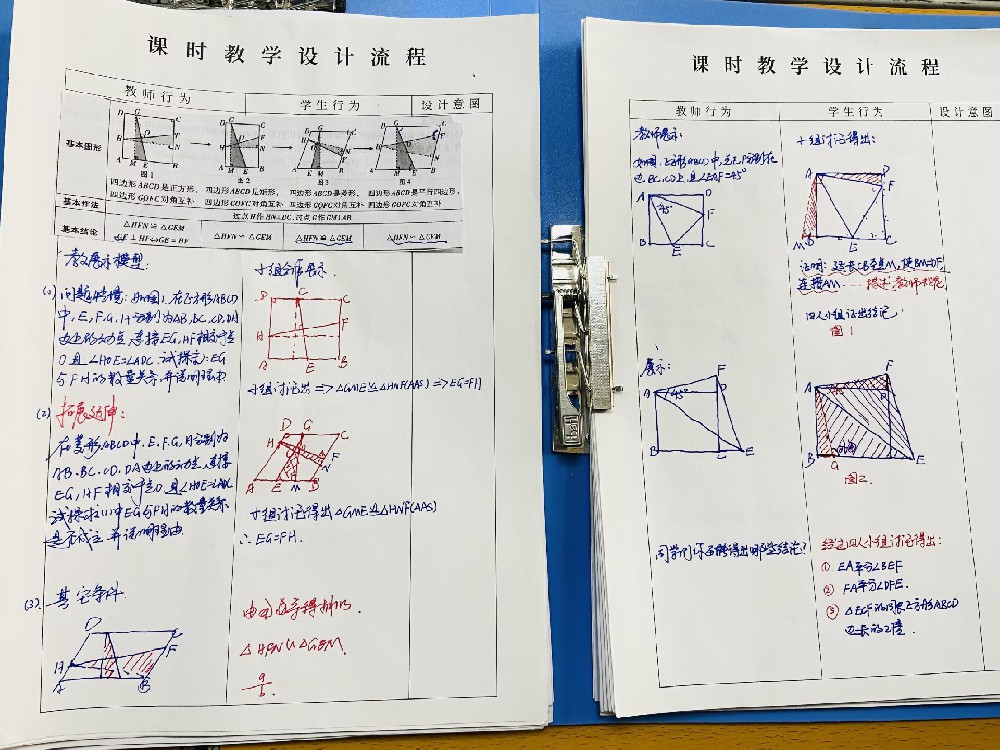 课时教学设计流程
教师行为 学生行为 设计意图
基本图形
D G C
H O F N
A M E B
图1
图2
图3
图4
四边形ABCD是正方形, 四边形GOFC对角互补
四边形ABCD是矩形, 四边形GOFC对角互补
四边形ABCD是菱形, 四边形GOFC对角互补
四边形ABCD是平行四边形, 四边形GOFC对角互补
基本作法 过点H作HN⊥BC,过点G作GM⊥AB
基本结论 △HFN≌△GEM
GE⊥HF⇔GE=HF
△HFN∽△GEM
△HFN≌△GEM
△HFN∽△GEM
教师展示模型:
(1) 问题情境:如图1,在正方形ABCD
中,E,F,G,H分别为AB,BC,CD,DA
边上的动点,连接EG,HF相交于点
O且∠HOE=∠ADC.试探究:EG
与FH的数量关系,并说明理由.
(2) 拓展延伸:
在菱形ABCD中,E,F,G,H分别为
AB、BC、CD、DA边上的动点,连接
EG,HF相交于点O,且∠HOE=∠ADC
试探究(1)中EG与FH的数量关系
是否成立,并说明理由.
(3)、其它条件
D
H F
A B
十组合作展示
D G C
H F
A E B
十组讨论出 => △GME≌△HNF(AAS) => EG=FH
D G C
H F
N
A E M B
十组讨论得出△GME≌△HNF(AAS)
∴EG=FH.
△HFN∽△GEM.
a
b.
课时教学设计流程
教师行为 学生行为 设计意图
教师展示:
如图,正方形ABCD中,点E,F分别在
边BC,CD上,且∠EAF=45°
A D
45° F
B E C
展示:
A F
45° D
B C E
同学们还能得出哪些结论?
十组讨论得出:
A D
F
M B E C
证明:延长CB至点M,使BM=DF,
连接AM……
四人小组证出结论.
图1
A F
D
B G E
图2.
经过四人小组讨论得出:
① EA平分∠BEF
② FA平分∠DFE.
③ △ECF的周长是正方形ABCD
边长的2倍.